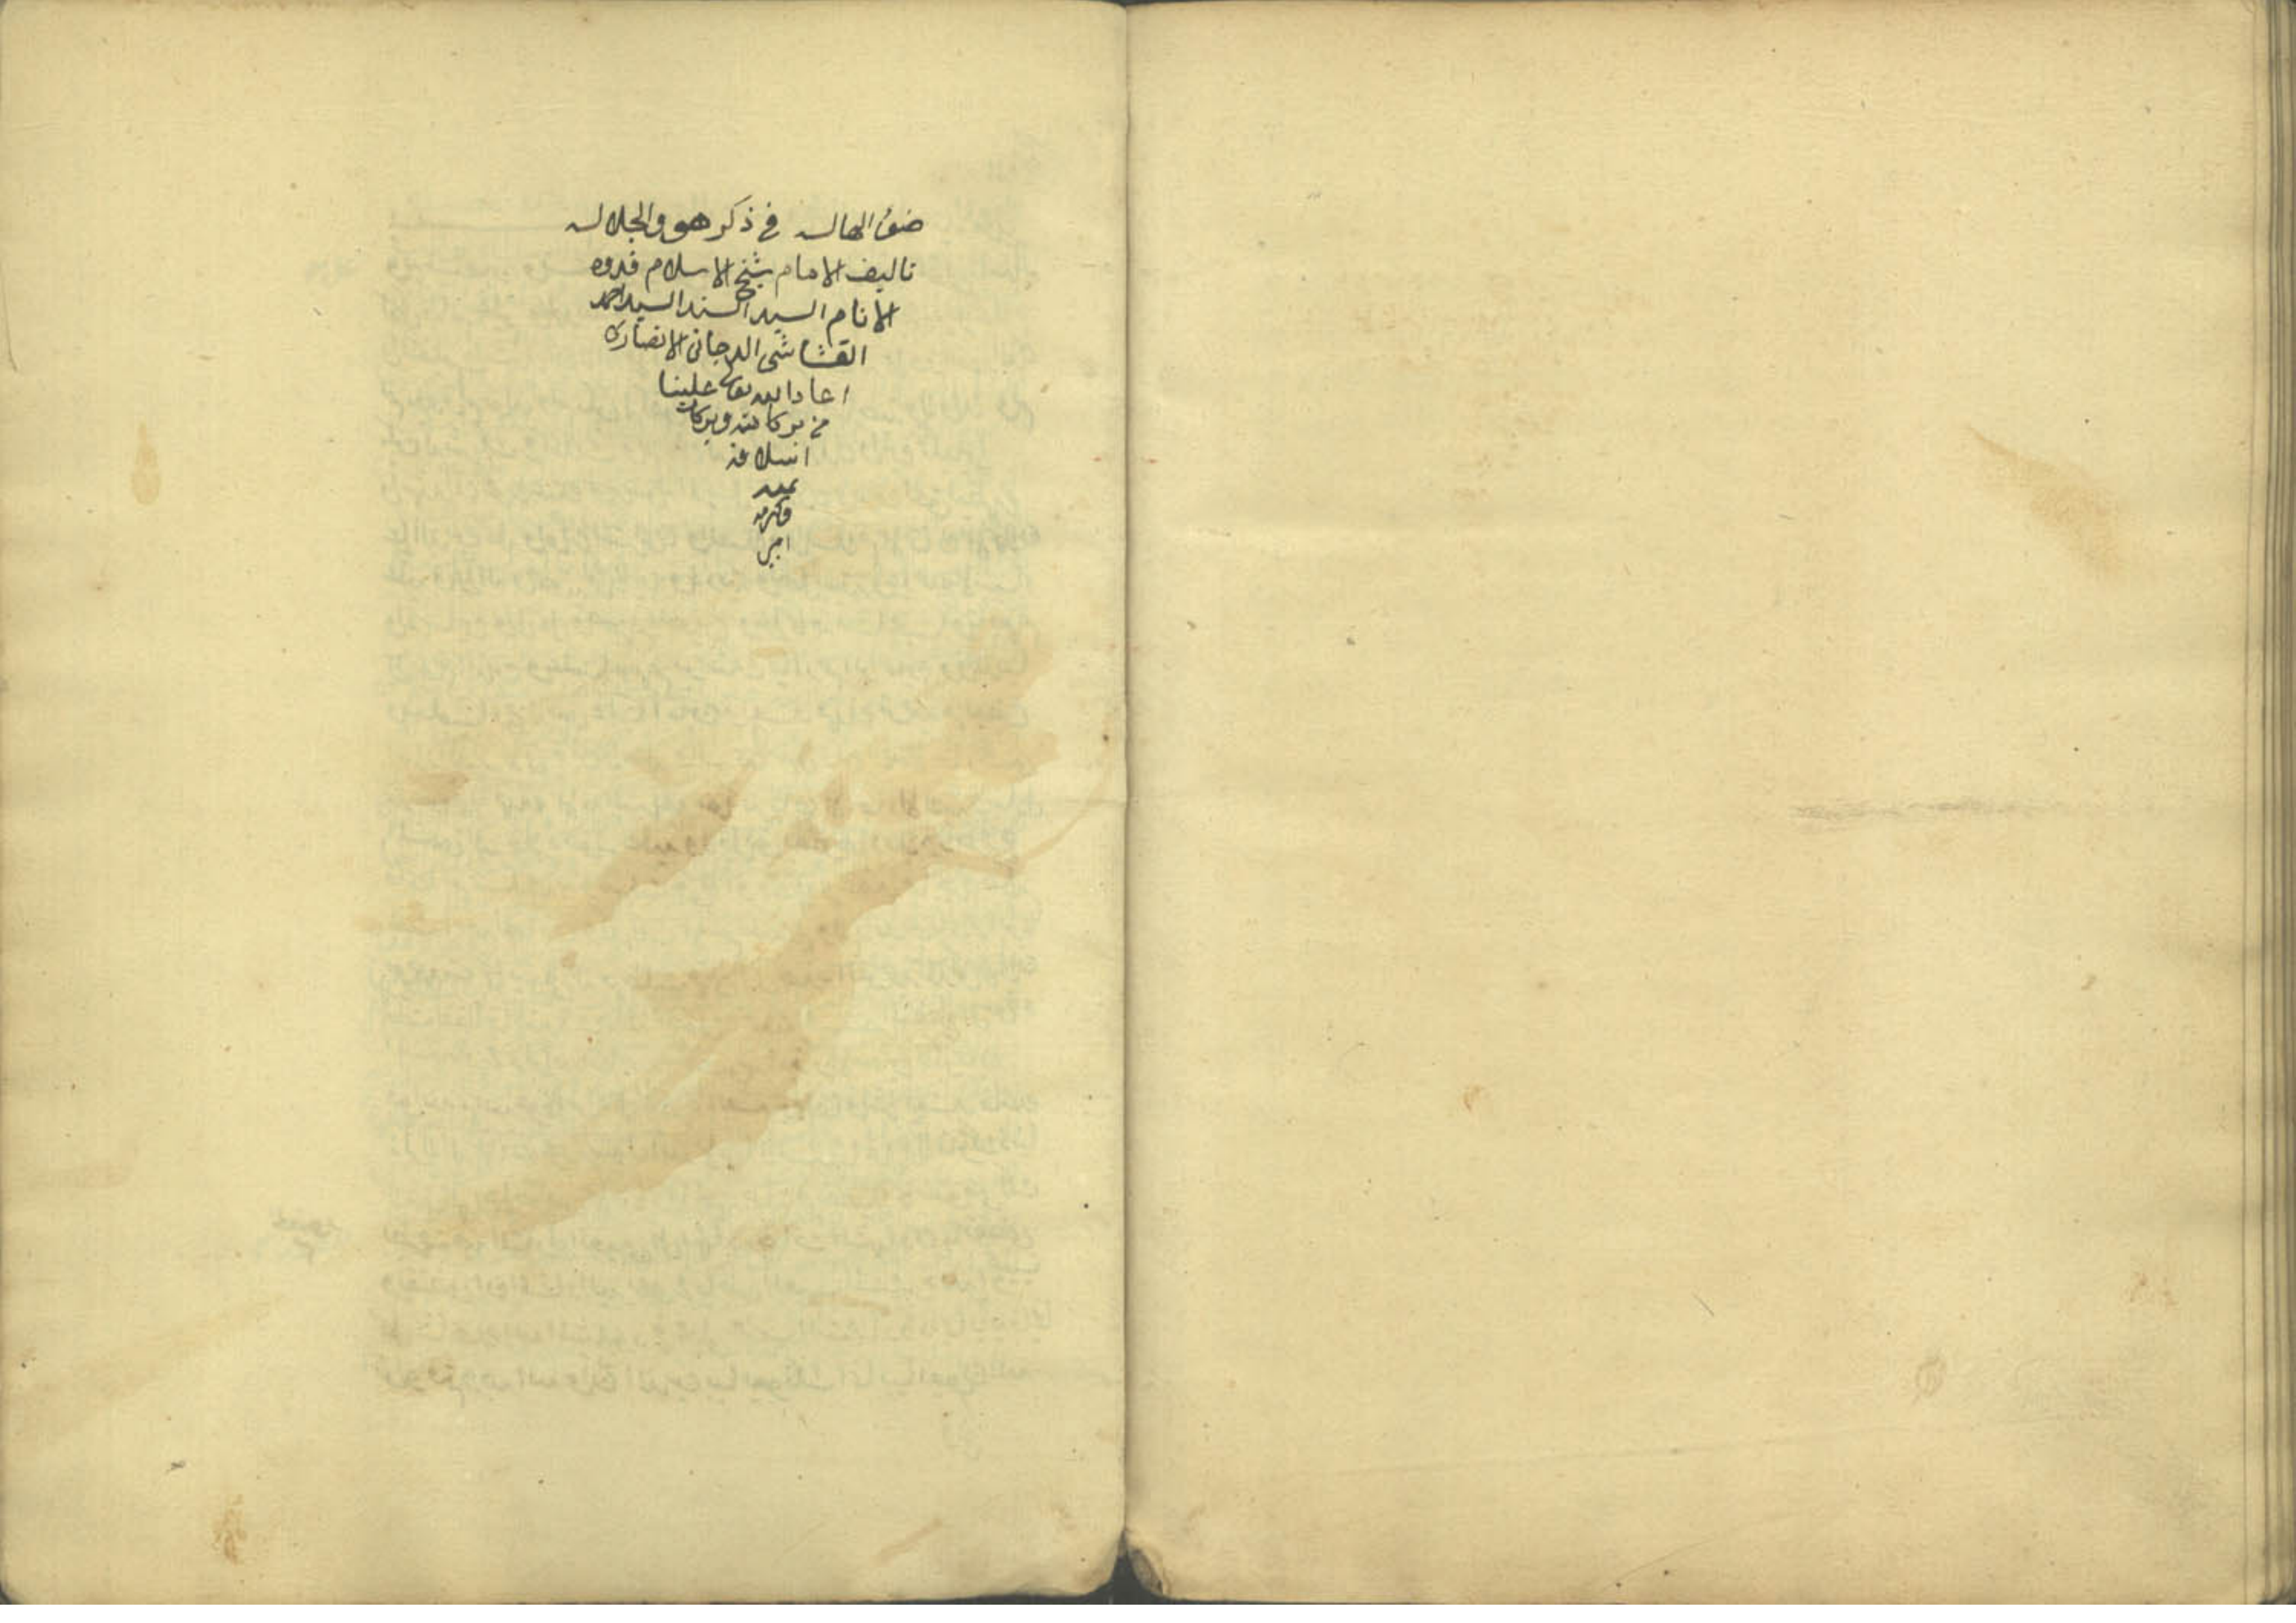 ضوء الهاله في ذكر هو والجلاله
تاليف الامام شيخ الاسلام قدوه
الانام السيد السند السيد احمد
القشاشي الدجاني الانصاري
اعاد الله تعالى علينا
من بركاته وبركات
اسلافه
بمنه
وكرمه
امين